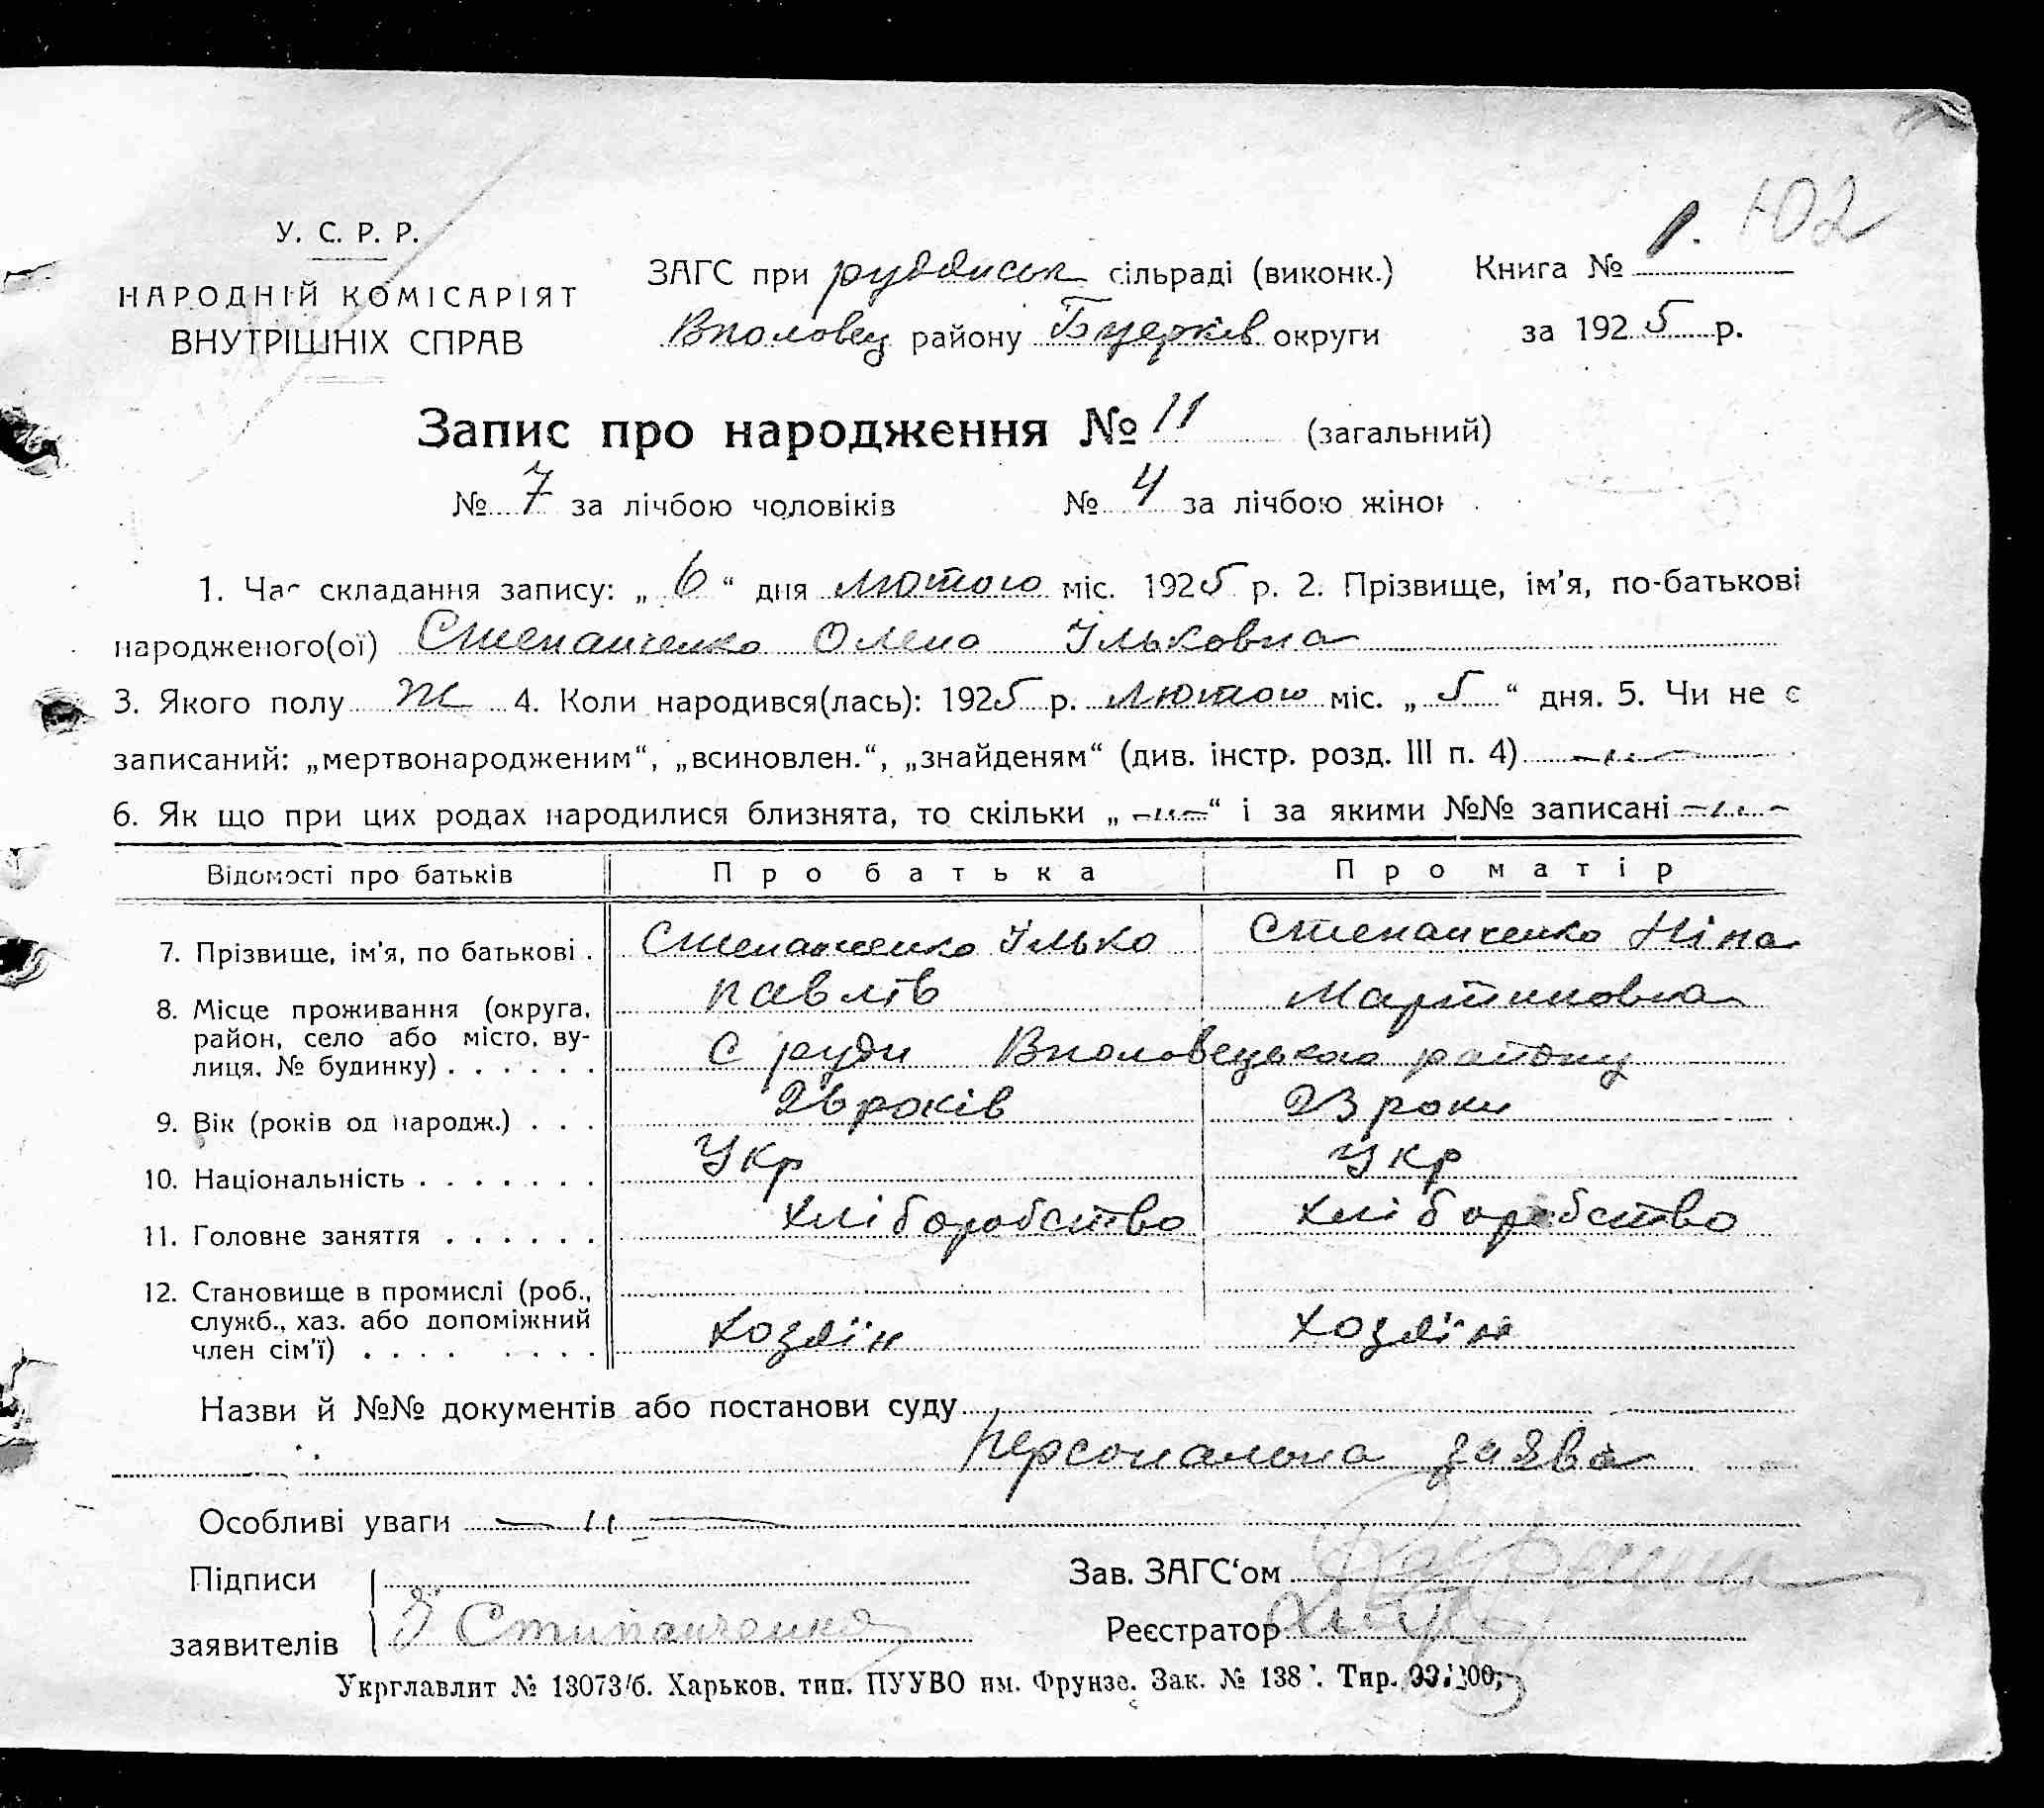 102
У. С. Р. Р.
НАРОДНІЙ КОМІСАРІЯТ
ВНУТРІШНІХ СПРАВ
ЗАГС при рудянськ сільраді (виконк.)
Вполовец району Бцерків округи
Книга № 1.
за 1925 р.
Запис про народження № 11 (загальний)
№ 7 за лічбою чоловіків № 4 за лічбою жінок
1. Час складання запису: „ 6 “ дня лютого міс. 1925 р. 2. Прізвище, ім'я, по-батькові
народженого(ої) Степанченко Олена Ільковна
3. Якого полу Ж 4. Коли народився(лась): 1925 р. лютого міс. „ 5 “ дня. 5. Чи не є
записаний: „мертвонародженим“, „всиновлен.“, „знайденям“ (див. інстр. розд. III п. 4) —„—
6. Як що при цих родах народилися близнята, то скільки „ —„— “ і за якими №№ записані —„—
Відомості про батьків Про батька Про матір
7. Прізвище, ім'я, по батькові . Степанченко Ілько Степанченко Ніна
павлів Мартиновна
8. Місце проживання (округа, район, село або місто, ву-
лиця, № будинку) . . . . . . С руди Вполовецького району
9. Вік (років од народж.) . . . 26 років 23 роки
10. Національність . . . . . . . Укр Укр
11. Головне заняття . . . . . . хліборобство хліборобство
12. Становище в промислі (роб.,
служб., хаз. або допоміжний
член сім'ї) . . . . . . . . хозяїн хозяїн
Назви й №№ документів або постанови суду
персональна заява
Особливі уваги —„—
Підписи Зав. ЗАГС'ом
заявителів Стипанченко Реєстратор
Укрглавлит № 13073/б. Харьков. тип. ПУУВО им. Фрунзе. Зак. № 138 . Тир.